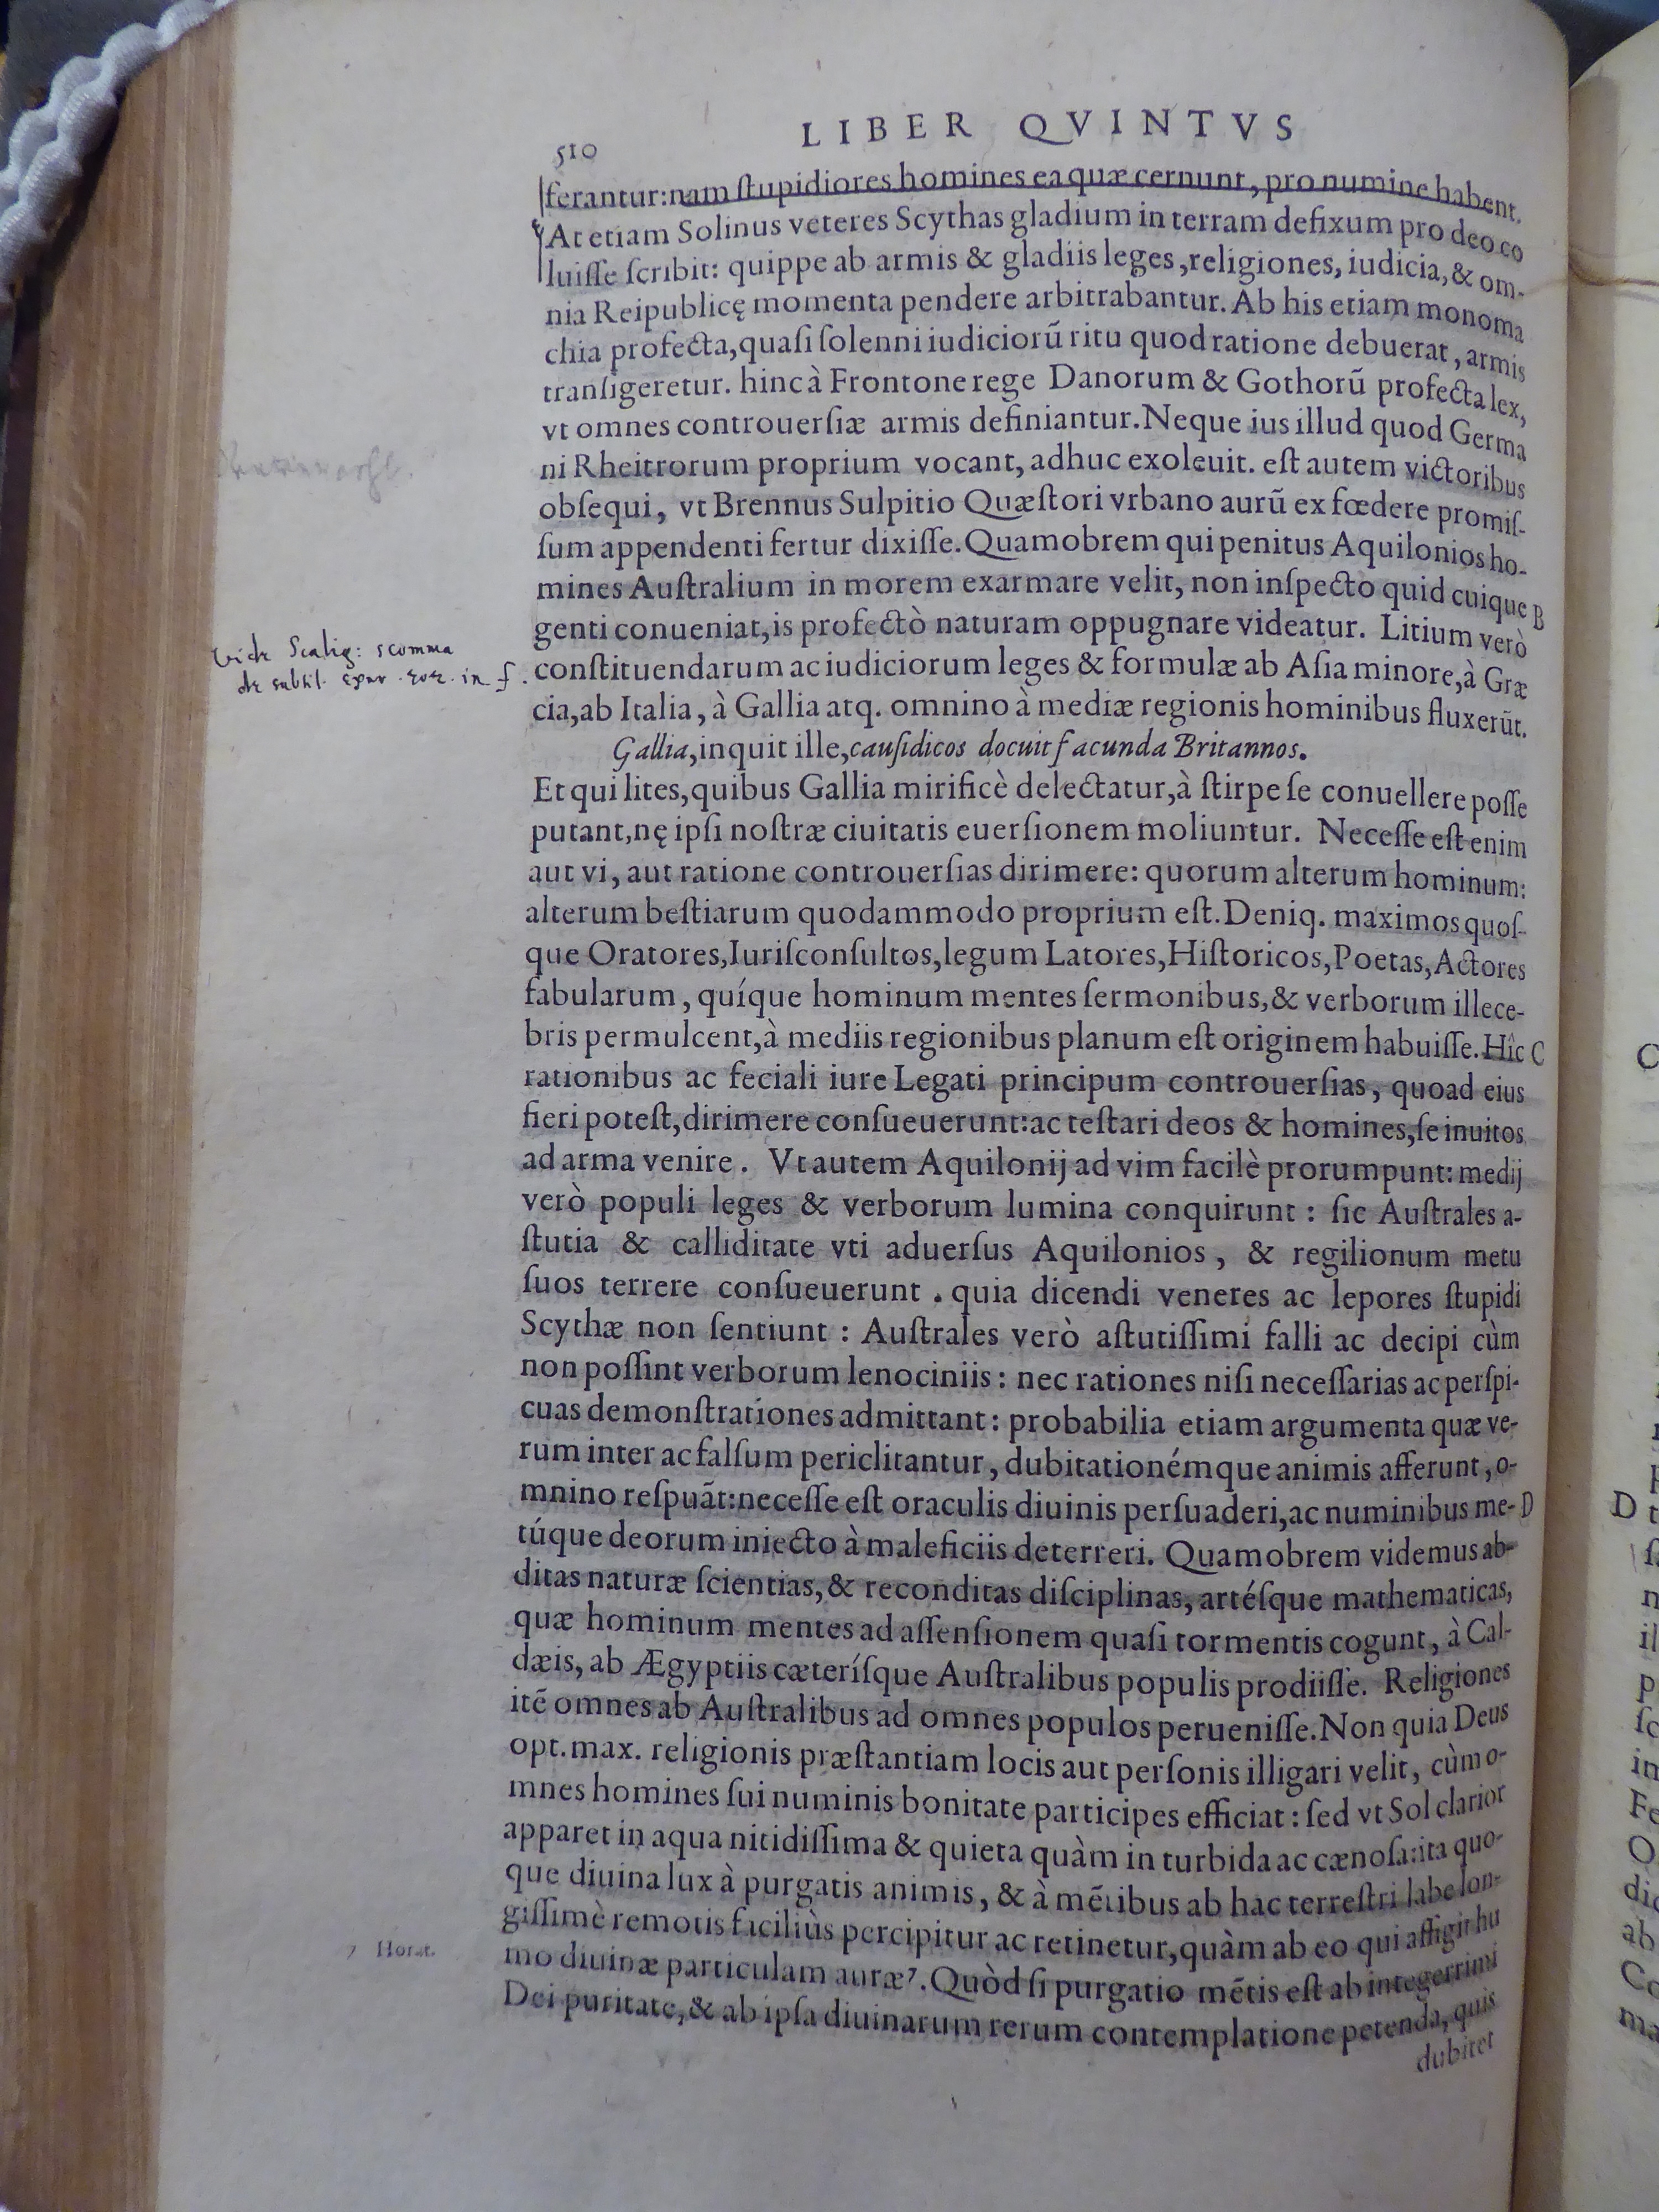 510
LIBER QVINTVS
ferantur:nam ſtupidiores homines ea quæ cernunt, pro numine habent.
At etiam Solinus veteres Scythas gladium in terram defixum pro deo co
luiſſe ſcribit: quippe ab armis & gladiis leges, religiones, iudicia, & om-
nia Reipublicę momenta pendere arbitrabantur. Ab his etiam monoma
chia profecta, quaſi ſolenni iudiciorũ ritu quod ratione debuerat, armis
tranſigeretur. hinc à Frontone rege Danorum & Gothorũ profecta lex,
vt omnes controuerſiæ armis definiantur. Neque ius illud quod Germa
ni Rheitrorum proprium vocant, adhuc exoleuit. eſt autem victoribus
obſequi, vt Brennus Sulpitio Quæſtori vrbano aurũ ex fœdere promiſ-
ſum appendenti fertur dixiſſe. Quamobrem qui penitus Aquilonios ho-
mines Auſtralium in morem exarmare velit, non inſpecto quid cuique B
genti conueniat, is profectò naturam oppugnare videatur. Litium verò
vide Scalig: scomma
de subtil. in f.
conſtituendarum ac iudiciorum leges & formulæ ab Aſia minore, à Græ
cia, ab Italia, à Gallia atq. omnino à mediæ regionis hominibus fluxerũt.
Gallia, inquit ille, cauſidicos docuit facunda Britannos.
Et qui lites, quibus Gallia mirificè delectatur, à ſtirpe ſe conuellere poſſe
putant, nę ipſi noſtræ ciuitatis euerſionem moliuntur. Neceſſe eſt enim
aut vi, aut ratione controuerſias dirimere: quorum alterum hominum:
alterum beſtiarum quodammodo proprium eſt. Deniq. maximos quoſ-
que Oratores, Iuriſconſultos, legum Latores, Hiſtoricos, Poetas, Actores
fabularum, quíque hominum mentes ſermonibus, & verborum illece-
bris permulcent, à mediis regionibus planum eſt originem habuiſſe. Hîc C
rationibus ac feciali iure Legati principum controuerſias, quoad eius
fieri poteſt, dirimere conſueuerunt: ac teſtari deos & homines, ſe inuitos
ad arma venire. Vt autem Aquilonij ad vim facilè prorumpunt: medij
verò populi leges & verborum lumina conquirunt: ſic Auſtrales a-
ſtutia & calliditate vti aduerſus Aquilonios, & regilionum metu
ſuos terrere conſueuerunt. quia dicendi veneres ac lepores ſtupidi
Scythæ non ſentiunt: Auſtrales verò aſtutiſſimi falli ac decipi cùm
non poſſint verborum lenociniis: nec rationes niſi neceſſarias ac perſpi-
cuas demonſtrationes admittant: probabilia etiam argumenta quæ ve-
rum inter ac falſum periclitantur, dubitationémque animis afferunt, o-
mnino reſpuãt: neceſſe eſt oraculis diuinis perſuaderi, ac numinibus me- D
túque deorum iniecto à maleficiis deterreri. Quamobrem videmus ab-
ditas naturæ ſcientias, & reconditas diſciplinas, artéſque mathematicas,
quæ hominum mentes ad aſſenſionem quaſi tormentis cogunt, à Cal-
dæis, ab Ægyptiis cæteríſque Auſtralibus populis prodiiſſe. Religiones
itẽ omnes ab Auſtralibus ad omnes populos perueniſſe. Non quia Deus
opt. max. religionis præſtantiam locis aut perſonis illigari velit, cùm o-
mnes homines ſui numinis bonitate participes efficiat: ſed vt Sol clarior
apparet in aqua nitidiſſima & quieta quàm in turbida ac cænoſa: ita quo-
que diuina lux à purgatis animis, & à mẽtibus ab hac terreſtri labe lon-
giſſimè remotis faciliùs percipitur ac retinetur, quàm ab eo qui affigit hu
7 Horat.
mo diuinæ particulam auræ⁷. Quòd ſi purgatio mẽtis eſt ab integerrimi
Dei puritate, & ab ipſa diuinarum rerum contemplatione petenda, quis
dubitet